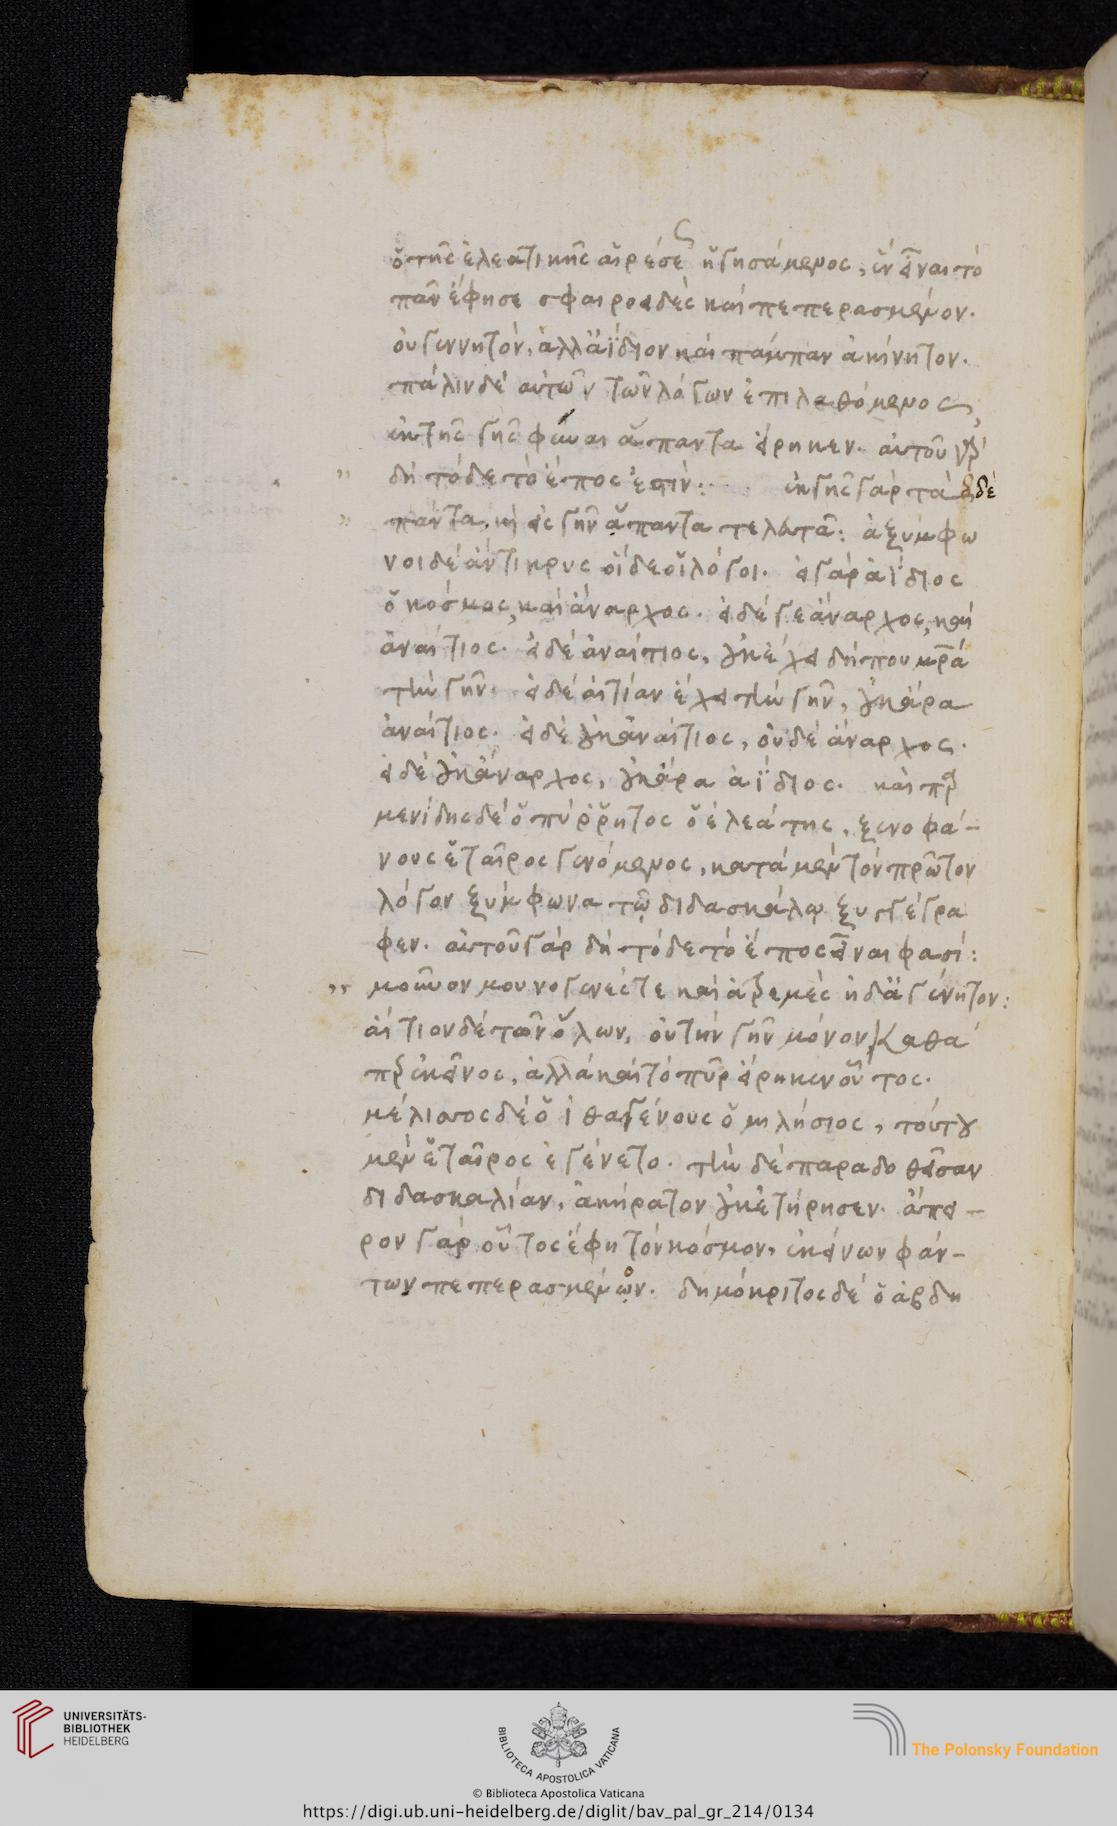 ὁ τῆς ἐλεατικῆς αἱρέσεως ἡγησάμενος, ἓν εἶναι τὸ
πᾶν ἔφησε σφαιροειδὲς καὶ πεπερασμένον.
οὐ γεννητόν, ἀλλ' ἀΐδιον καὶ πάμπαν ἀκίνητον.
πάλιν δὲ αὐτῶν τῶν λόγων ἐπιλαθόμενος,
ἐκ τῆς γῆς φῦναι ἅπαντα εἴρηκεν. αὐτοῦ γὰρ
δὴ τόδε τὸ ἔπος ἐστίν: ἐκ γῆς γὰρ τάδε
πάντα, καὶ εἰς γῆν ἅπαντα τελευτᾷ: ἀξύμφω
νοι δὲ ἄντικρυς οἵδε οἱ λόγοι. εἰ γὰρ ἀΐδιος
ὁ κόσμος, καὶ ἄναρχος. εἰ δέ γε ἄναρχος, καὶ
ἀναίτιος. εἰ δὲ ἀναίτιος, οὐκ ἔχει δήπου μητέρα
τὴν γῆν. εἰ δὲ αἰτίαν ἔχει τὴν γῆν, οὐκ ἄρα
ἀναίτιος. εἰ δὲ οὐκ ἀναίτιος, οὐδὲ ἄναρχος.
εἰ δὲ οὐκ ἄναρχος, οὐκ ἄρα ἀΐδιος. καὶ παρ
μενίδης δὲ ὁ πύρρητος ὁ ἐλεάτης, ξενοφά-
νους ἑταῖρος γενόμενος, κατὰ μὲν τὸν πρῶτον
λόγον ξύμφωνα τῷ διδασκάλῳ ξυγγέγρα
φεν. αὐτοῦ γὰρ δὴ τόδε τὸ ἔπος εἶναι φασί:
μοῦνον μουνογενές τε καὶ ἀτρεμὲς ἠδ' ἀγένητον:
αἴτιον δὲ τῶν ὅλων, οὐ τὴν γῆν μόνον, καθά
περ ἐκεῖνος, ἀλλὰ καὶ τὸ πῦρ εἴρηκεν οὗτος.
μέλισσος δὲ ὁ ἰθαγένους ὁ μιλήσιος, τούτου
μὲν ἑταῖρος ἐγένετο. τὴν δὲ παραδοθεῖσαν
διδασκαλίαν, ἀκήρατον οὐκ ἐτήρησεν. ἄπει-
ρον γὰρ οὗτος ἔφη τὸν κόσμον, ἐκείνων φάν-
των πεπερασμένον. δημόκριτος δὲ ὁ ἀβδη
UNIVERSITÄTS-
BIBLIOTHEK
HEIDELBERG
BIBLIOTECA APOSTOLICA VATICANA
The Polonsky Foundation
© Biblioteca Apostolica Vaticana
https://digi.ub.uni-heidelberg.de/diglit/bav_pal_gr_214/0134